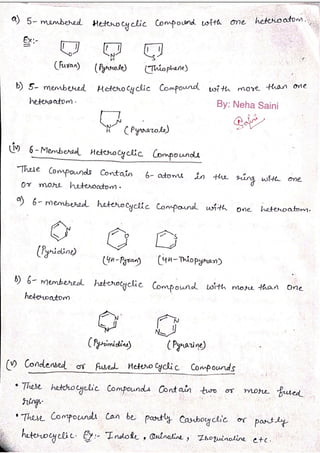 a) 5-membered Heterocyclic Compound with one heteroatom.
Ex:-
O N H S
(Furan) (Pyrrole) (Thiophene)
b) 5- membered Heterocyclic Compound with more than one
heteroatom.
By: Neha Saini
N H
(Pyrazole)
(iv) 6-Membered Heterocyclic Compounds
These Compounds Contain 6- atoms in the ring with one
or more heteroatom.
a) 6-membered heterocyclic Compound with one heteroatom.
N O S
(Pyridine) (4H-Pyran) (4H-Thiopyran)
b) 6-membered heterocyclic Compound with more than one
heteroatom
N N N N
(Pyrimidine) (Pyrazine)
(v) Condensed or Fused Heterocyclic Compounds
• These heterocyclic Compounds Contain two or more fused
rings.
• These Compounds Can be partly Carbocyclic or partly
heterocyclic. Ex:- Indole, Quinoline, Isoquinoline etc.